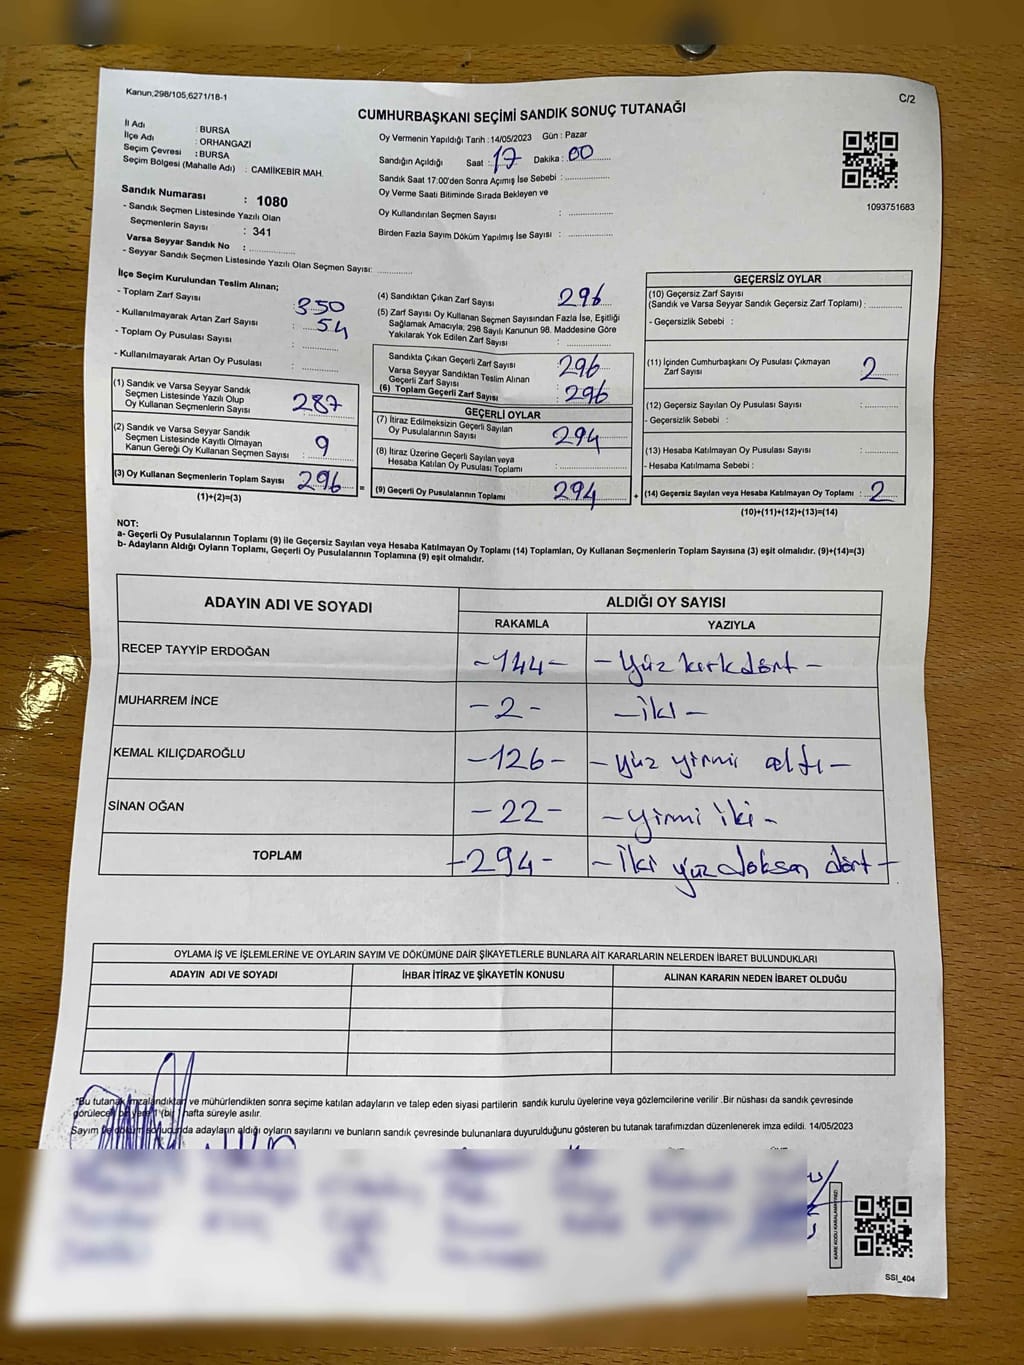 Kanun,298/105,6271/18-1
C/2
CUMHURBAŞKANI SEÇİMİ SANDIK SONUÇ TUTANAĞI
İl Adı : BURSA
İlçe Adı : ORHANGAZİ
Seçim Çevresi : BURSA
Seçim Bölgesi (Mahalle Adı) : CAMİİKEBİR MAH.
Oy Vermenin Yapıldığı Tarih : 14/05/2023 Gün : Pazar
Sandığın Açıldığı Saat : 17 Dakika : 00
Sandık Saat 17:00'den Sonra Açımış İse Sebebi :
Oy Verme Saati Bitiminde Sırada Bekleyen ve
Oy Kullandırılan Seçmen Sayısı :
Birden Fazla Sayım Döküm Yapılmış İse Sayısı :
1093751683
Sandık Numarası : 1080
- Sandık Seçmen Listesinde Yazılı Olan
Seçmenlerin Sayısı : 341
Varsa Seyyar Sandık No :
- Seyyar Sandık Seçmen Listesinde Yazılı Olan Seçmen Sayısı:
İlçe Seçim Kurulundan Teslim Alınan;
- Toplam Zarf Sayısı : 350
- Kullanılmayarak Artan Zarf Sayısı : 54
- Toplam Oy Pusulası Sayısı :
- Kullanılmayarak Artan Oy Pusulası :
(1) Sandık ve Varsa Seyyar Sandık
Seçmen Listesinde Yazılı Olup
Oy Kullanan Seçmenlerin Sayısı : 287
(2) Sandık ve Varsa Seyyar Sandık
Seçmen Listesinde Kayıtlı Olmayan
Kanun Gereği Oy Kullanan Seçmen Sayısı : 9
(3) Oy Kullanan Seçmenlerin Toplam Sayısı : 296
(1)+(2)=(3)
(4) Sandıktan Çıkan Zarf Sayısı : 296
(5) Zarf Sayısı Oy Kullanan Seçmen Sayısından Fazla İse, Eşitliği
Sağlamak Amacıyla; 298 Sayılı Kanunun 98. Maddesine Göre
Yakılarak Yok Edilen Zarf Sayısı :
Sandıkta Çıkan Geçerli Zarf Sayısı : 296
Varsa Seyyar Sandıktan Teslim Alınan
Geçerli Zarf Sayısı :
(6) Toplam Geçerli Zarf Sayısı : 296
GEÇERLİ OYLAR
(7) İtiraz Edilmeksizin Geçerli Sayılan
Oy Pusulalarının Sayısı : 294
(8) İtiraz Üzerine Geçerli Sayılan veya
Hesaba Katılan Oy Pusulası Toplamı :
= (9) Geçerli Oy Pusulalarının Toplamı : 294 +
GEÇERSİZ OYLAR
(10) Geçersiz Zarf Sayısı
(Sandık ve Varsa Seyyar Sandık Geçersiz Zarf Toplamı) :
- Geçersizlik Sebebi :
(11) İçinden Cumhurbaşkanı Oy Pusulası Çıkmayan
Zarf Sayısı : 2
(12) Geçersiz Sayılan Oy Pusulası Sayısı :
- Geçersizlik Sebebi :
(13) Hesaba Katılmayan Oy Pusulası Sayısı :
- Hesaba Katılmama Sebebi :
(14) Geçersiz Sayılan veya Hesaba Katılmayan Oy Toplamı : 2
(10)+(11)+(12)+(13)=(14)
NOT:
a- Geçerli Oy Pusulalarının Toplamı (9) ile Geçersiz Sayılan veya Hesaba Katılmayan Oy Toplamı (14) Toplamları, Oy Kullanan Seçmenlerin Toplam Sayısına (3) eşit olmalıdır. (9)+(14)=(3)
b- Adayların Aldığı Oyların Toplamı, Geçerli Oy Pusulalarının Toplamına (9) eşit olmalıdır.
ADAYIN ADI VE SOYADI ALDIĞI OY SAYISI
RAKAMLA YAZIYLA
RECEP TAYYİP ERDOĞAN -144- - Yüz kırkdört -
MUHARREM İNCE - 2 - - iki -
KEMAL KILIÇDAROĞLU -126- - yüz yirmi altı -
SİNAN OĞAN - 22 - - yirmi iki -
TOPLAM - 294 - - iki yüz doksan dört -
OYLAMA İŞ VE İŞLEMLERİNE VE OYLARIN SAYIM VE DÖKÜMÜNE DAİR ŞİKAYETLERLE BUNLARA AİT KARARLARIN NELERDEN İBARET BULUNDUKLARI
ADAYIN ADI VE SOYADI İHBAR İTİRAZ VE ŞİKAYETİN KONUSU ALINAN KARARIN NEDEN İBARET OLDUĞU
"Bu tutanak imzalandıktan ve mühürlendikten sonra seçime katılan adayların ve talep eden siyasi partilerin sandık kurulu üyelerine veya gözlemcilerine verilir .Bir nüshası da sandık çevresinde
görülecek bir yere 1 (bir) hafta süreyle asılır.
Sayım ve döküm sonucunda adayların aldığı oyların sayılarını ve bunların sandık çevresinde bulunanlara duyurulduğunu gösteren bu tutanak tarafımızdan düzenlenerek imza edildi. 14/05/2023
KARE KODU KARALAMAYINIZ!
SSI_404